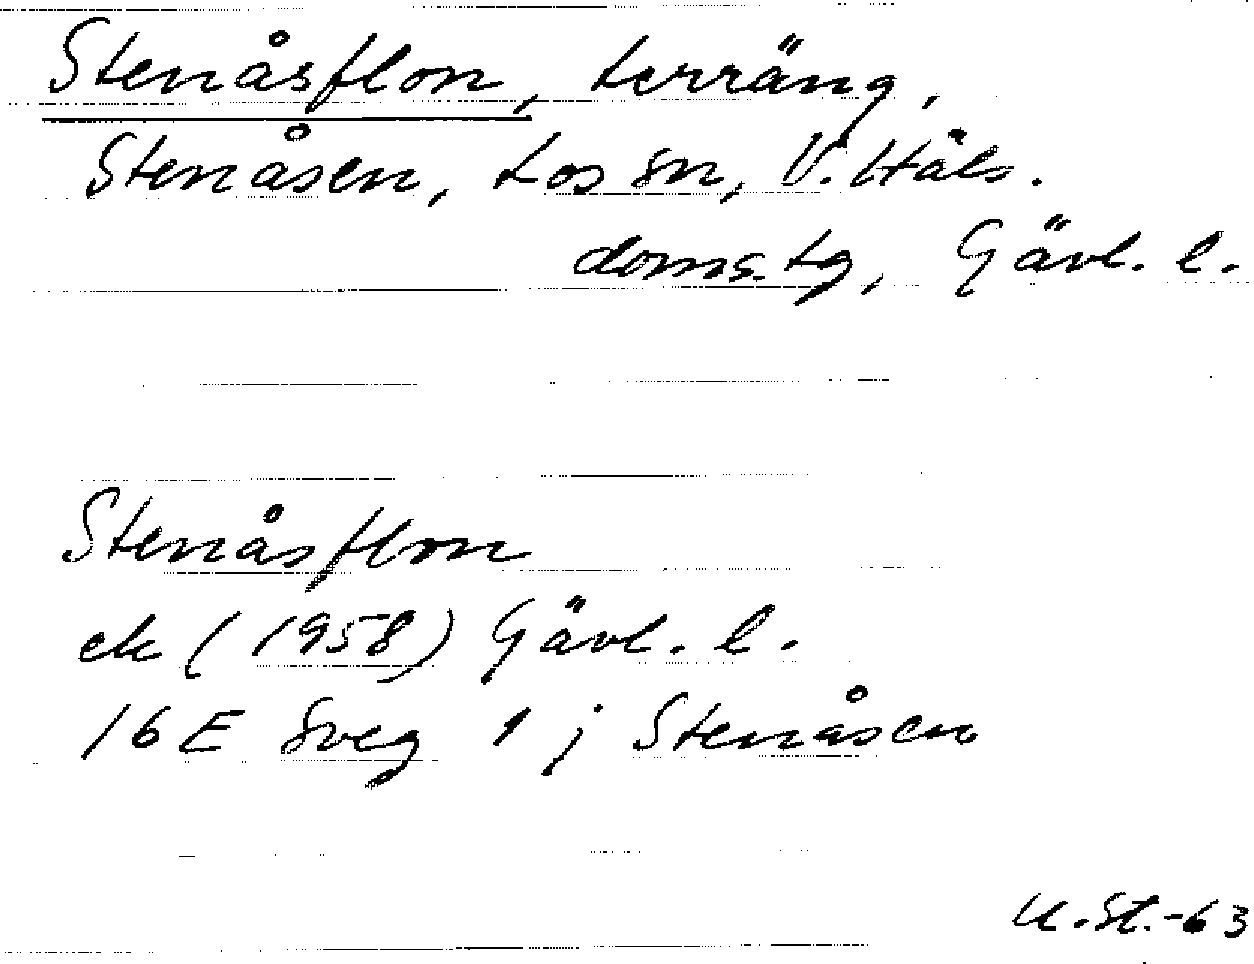 Stenåsflon, terräng,
Stenåsen, Los sn, V. Häls.
doms.tg, Gävl. l.
Stenåsflon
ek (1958) Gävl. l.
16E Sveg 1 j Stenåsen
U.St.-63